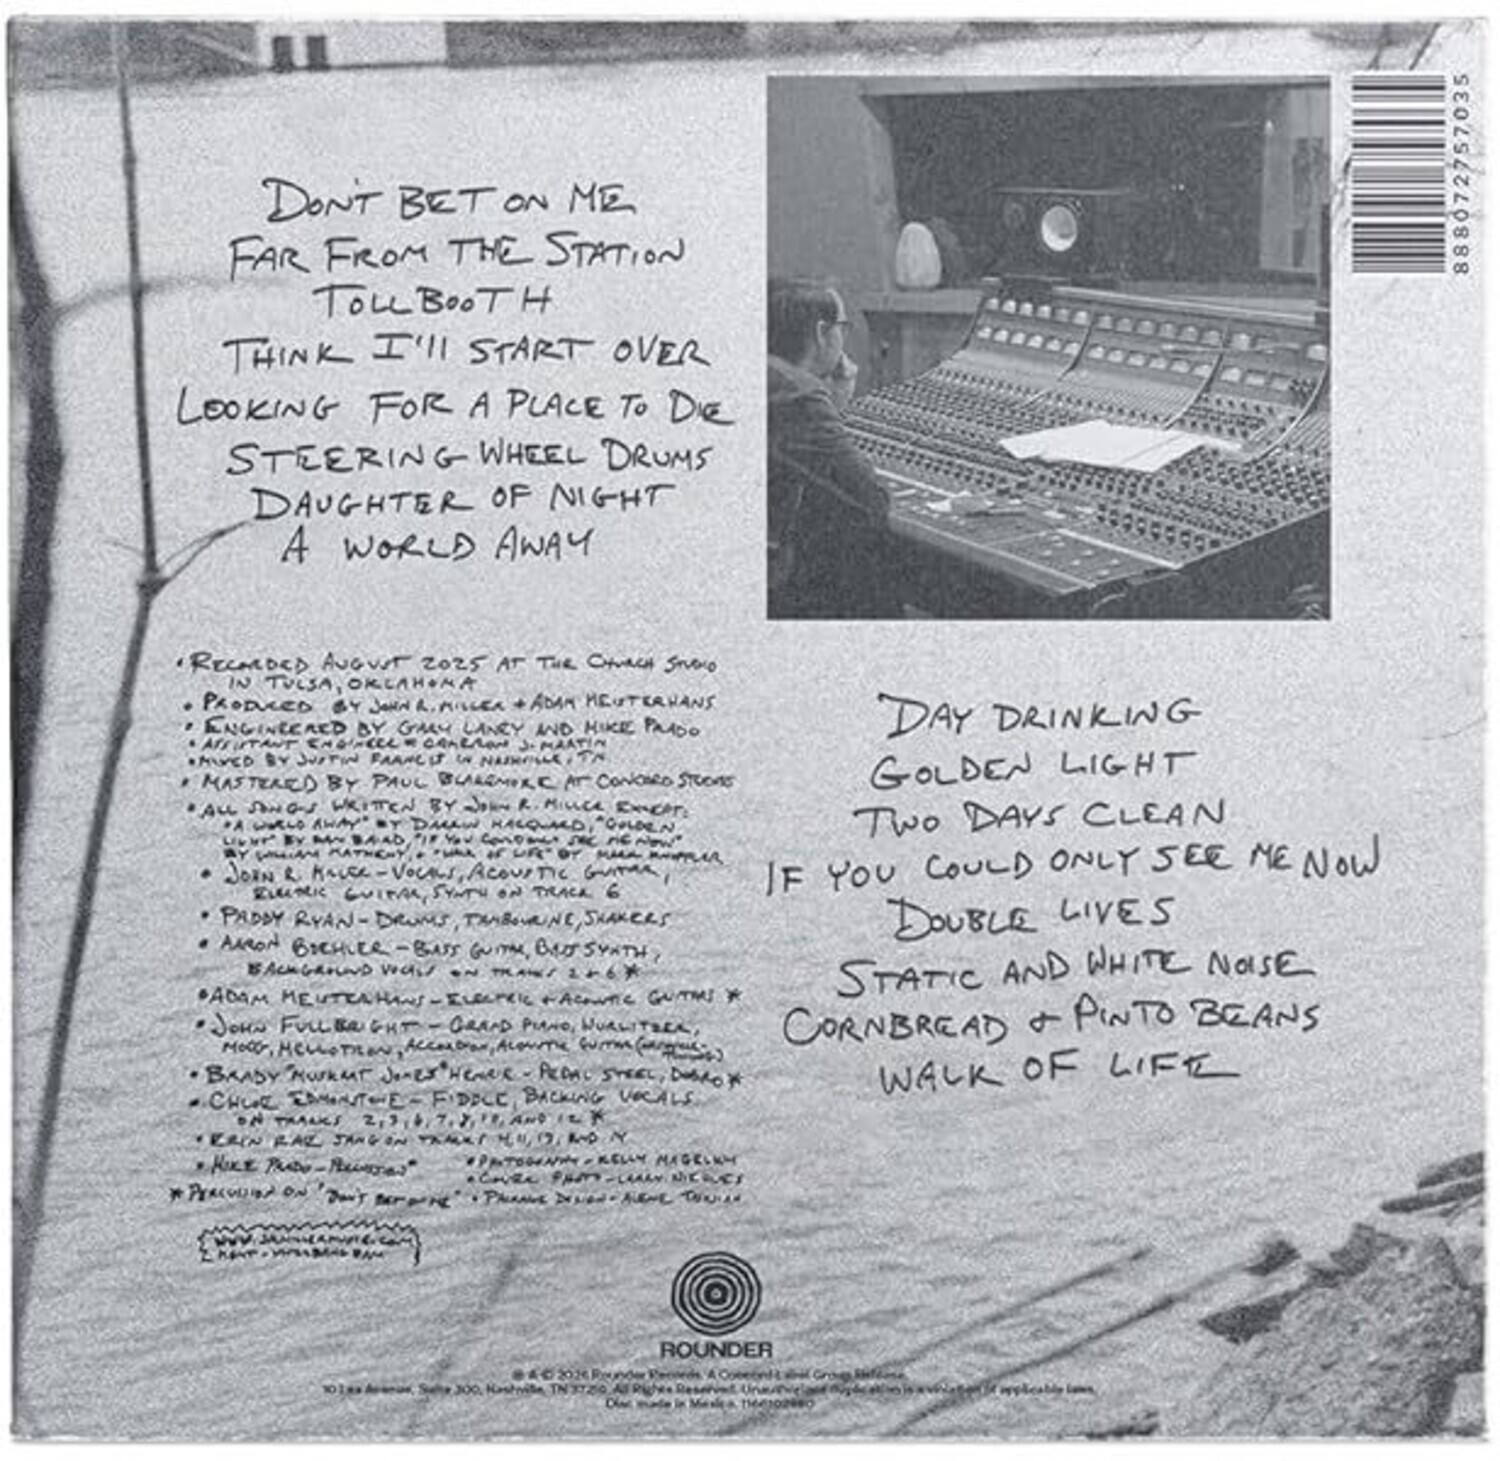 DON'T BET ON ME
FAR FROM THE STATION
TOLLBOOTH
THINK I'll START OVER
LOOKING FOR A PLACE TO DIE
STEERING WHEEL DRUMS
DAUGHTER OF NIGHT
A WORLD AWAY
888072757035
• RECORDED AUGUST 2025 AT THE CHURCH STUDIO
IN TULSA, OKLAHOMA
• PRODUCED BY JOHN R. MILLER + ADAM MEISTERHANS
• ENGINEERED BY GARY LANEY AND MIKE PRADO
• ASSISTANT ENGINEER = CAMERON J. MARTIN
• MIXED BY JUSTIN FRANCIS IN NASHVILLE, TN
• MASTERED BY PAUL BLAKEMORE AT CONCORD STUDIOS
• ALL SONGS WRITTEN BY JOHN R. MILLER EXCEPT:
"A WORLD AWAY" BY DARRIN HACQUARD, "GOLDEN
LIGHT" BY DAN BAIRD, "IF YOU COULD ONLY SEE ME NOW"
BY WILLIAM MATHENY, + "WALK OF LIFE" BY MARK KNOPFLER
• JOHN R. MILLER - VOCALS, ACOUSTIC GUITAR,
ELECTRIC GUITAR, SYNTH ON TRACK 6
• PADDY RYAN - DRUMS, TAMBOURINE, SHAKERS
• AARON BOEHLER - BASS GUITAR, BASS SYNTH,
BACKGROUND VOCALS ON TRACKS 2 + 6 *
• ADAM MEISTERHANS - ELECTRIC + ACOUSTIC GUITARS *
• JOHN FULLBRIGHT - GRAND PIANO, WURLITZER,
MOOG, MELLOTRON, ACCORDION, ACOUSTIC GUITAR
• BRADY "MUSKRAT JONES" HENRIE - PEDAL STEEL, DOBRO *
• CHLOE EDMONSTONE - FIDDLE, BACKING VOCALS
ON TRACKS 2, 3, 6, 7, 8, 10, AND 12 *
• ERIN RAE SANG ON TRACKS 4, 11, 13, AND 14
• MIKE PRADO - PERCUSSION *
• PHOTOGRAPHY - KELLY
• COVER PHOTO - LARRY
* PERCUSSION ON "DON'T BET ON ME"
• PACKAGE DESIGN -
DAY DRINKING
GOLDEN LIGHT
TWO DAYS CLEAN
IF YOU COULD ONLY SEE ME NOW
DOUBLE LIVES
STATIC AND WHITE NOISE
CORNBREAD + PINTO BEANS
WALK OF LIFE
ROUNDER
Rounder Records. A Concord Label Group Release.
10 Lea Avenue, Suite 300, Nashville, TN 37210. All Rights Reserved. Unauthorized duplication is a violation of applicable laws.
Disc made in Mexico.